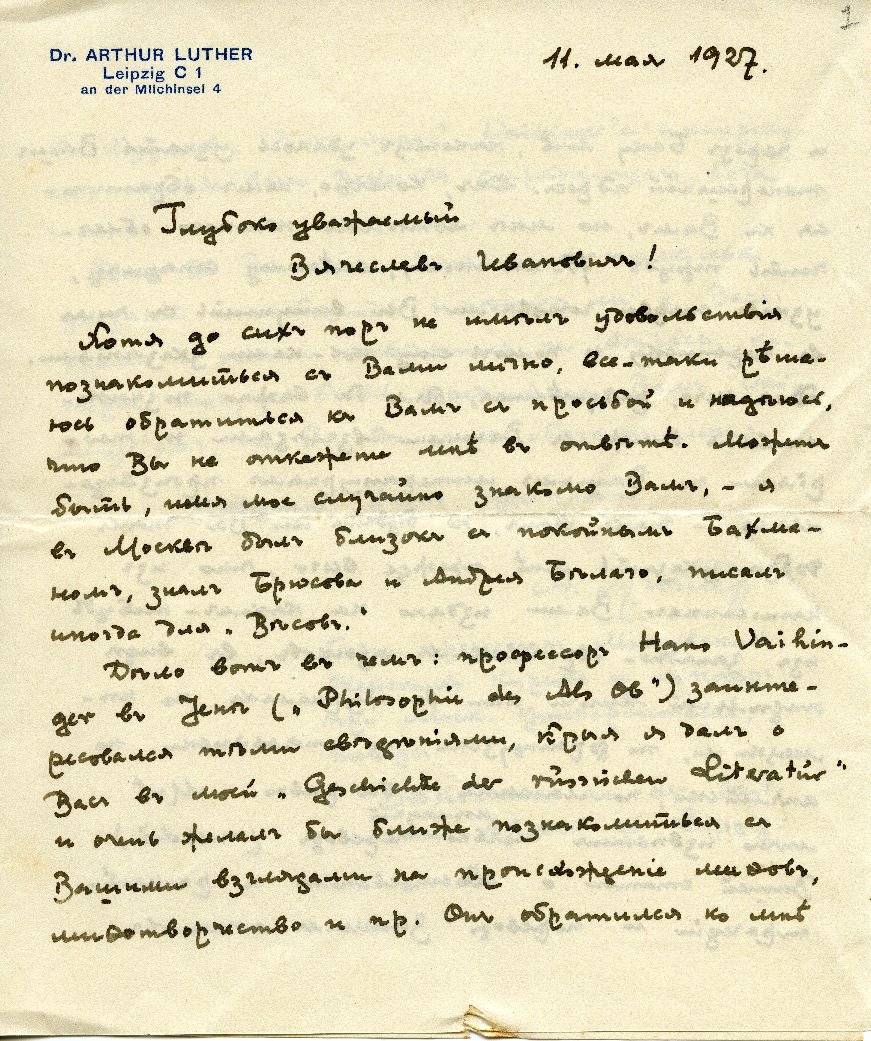 1
Dr. ARTHUR LUTHER
Leipzig C 1
an der Milchinsel 4
11. мая 1927.
Глубоко уважаемый
Вячеславъ Ивановичъ!
Хотя до сихъ поръ не имѣлъ удовольствія
познакомиться съ Вами лично, все-таки рѣша-
юсь обратиться къ Вамъ съ просьбой и надѣюсь,
что Вы не откажете мнѣ въ отвѣтѣ. Можетъ
быть, имя мое случайно знакомо Вамъ, - я
въ Москвѣ былъ близокъ съ покойнымъ Бахма-
номъ, зналъ Брюсова и Андрея Бѣлаго, писалъ
иногда для „Вѣсовъ.“
Дѣло вотъ въ чемъ: профессоръ Hans Vaihin-
ger въ Jena („Philosophie des Als Ob“) заинте-
ресовался тѣми свѣдѣніями, к̅рыя я далъ о
Васъ въ моей „Geschichte der russischen Literatur“
и очень желалъ бы ближе познакомиться съ
Вашими взглядами на происхожденіе миѳовъ,
миѳотворчество и пр. Онъ обратился ко мнѣ